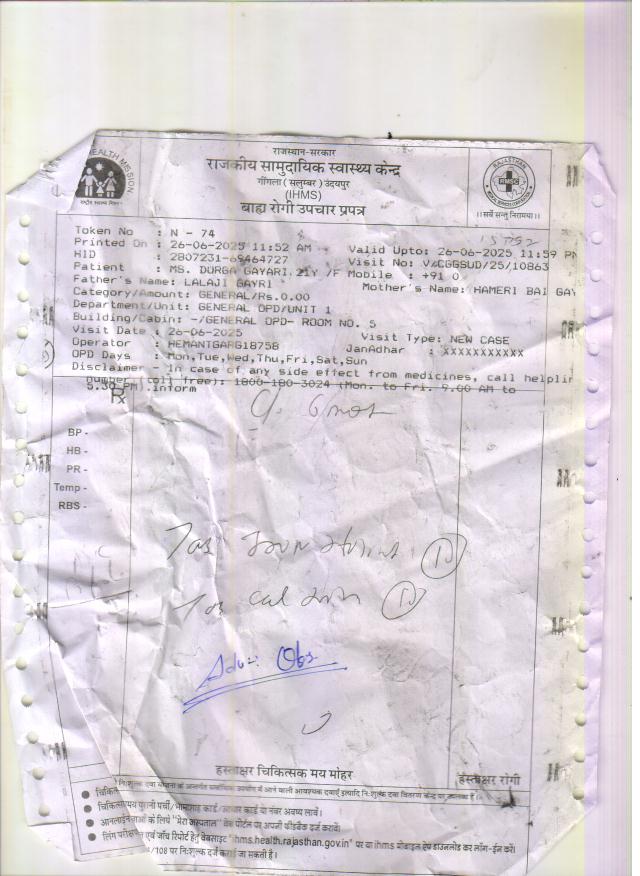 राजस्थान-सरकार
राजकीय सामुदायिक स्वास्थ्य केन्द्र
गींगला (सलुम्बर) उदयपुर
(IHMS)
बाह्य रोगी उपचार प्रपत्र
HEALTH MISSION
RAJASTHAN
RMSC
।।सर्वे सन्तु निरामया।।
Token No : N - 74
Printed On : 26-06-2025 11:52 AM Valid Upto: 26-06-2025 11:59 PM
HID : 2807231-69464727 Visit No: V/CGGSUD/25/10863
Patient : MS. DURGA GAYARI, 21Y /F Mobile : +91 0
Father's Name: LALAJI GAYRI Mother's Name: HAMERI BAI GAY
Category/Amount: GENERAL/Rs.0.00
Department/Unit: GENERAL OPD/UNIT 1
Building/Cabin: -/GENERAL OPD- ROOM NO. 5
Visit Date : 26-06-2025 Visit Type: NEW CASE
Operator : HEMANTGARG18758 JanAdhar : XXXXXXXXXXX
OPD Days : Mon,Tue,Wed,Thu,Fri,Sat,Sun
Disclaimer - In case of any side effect from medicines, call helplin
number (toll free): 1800-180-3024 (Mon. to Fri. 9.00 AM to
5.30 PM) .inform
Rx
BP -
HB -
PR -
Temp -
RBS -
Adv:- Obs
हस्ताक्षर चिकित्सक मय मोहर
हस्ताक्षर रोगी
पुरानी पर्ची/भामाशाह कार्ड/आधार कार्ड या नंबर अवश्य लावें।
के लिये "मेरा अस्पताल" वेब पोर्टल पर अपनी फीडबैक दर्ज करावें।
एवं जाँच रिपोर्ट हेतु वेबसाइट "ihms.health.rajasthan.gov.in" पर या ihms मोबाइल ऐप डाउनलोड कर लॉग-ईन करें।
/108 पर निःशुल्क दर्ज कराई जा सकती है।